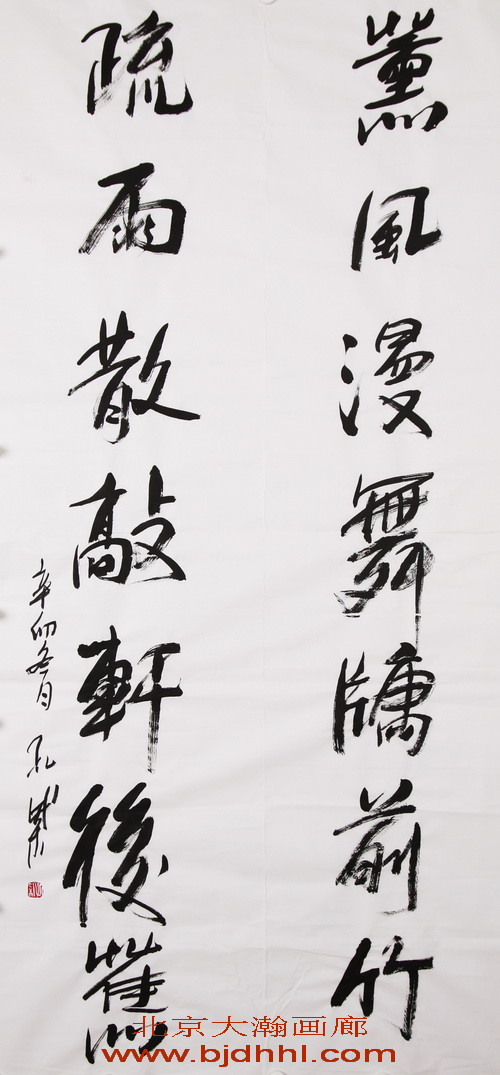 薰風漫舞牖前竹
疏雨散敲軒後蕉
辛卯冬月 孔
北京大瀚画廊
www.bjdhhl.com